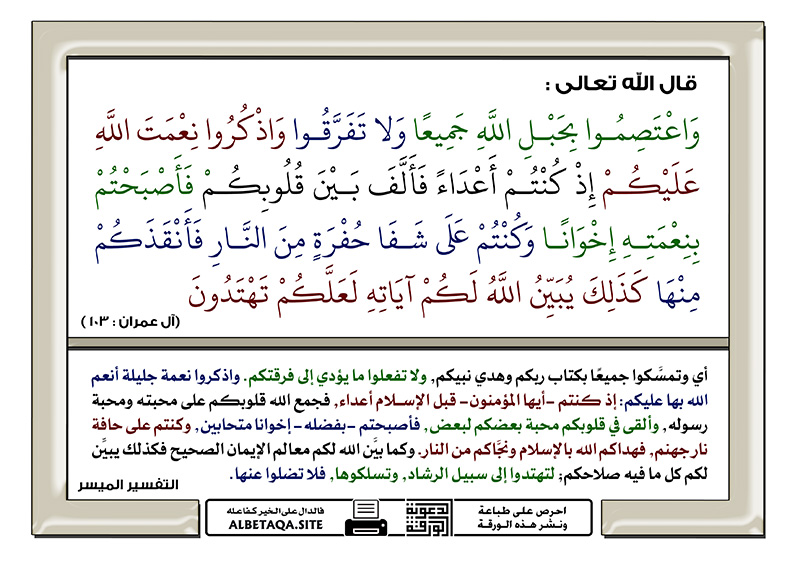 قال الله تعالى :
وَاعْتَصِمُوا بِحَبْلِ اللَّهِ جَمِيعًا وَلا تَفَرَّقُوا وَاذْكُرُوا نِعْمَتَ اللَّهِ
عَلَيْكُمْ إِذْ كُنْتُمْ أَعْدَاءً فَأَلَّفَ بَيْنَ قُلُوبِكُمْ فَأَصْبَحْتُمْ
بِنِعْمَتِهِ إِخْوَانًا وَكُنْتُمْ عَلَى شَفَا حُفْرَةٍ مِنَ النَّارِ فَأَنْقَذَكُمْ
مِنْهَا كَذَلِكَ يُبَيِّنُ اللَّهُ لَكُمْ آيَاتِهِ لَعَلَّكُمْ تَهْتَدُونَ
(آل عمران : ١٠٣)
أي وتمسَّكوا جميعًا بكتاب ربكم وهدي نبيكم, ولا تفعلوا ما يؤدي إلى فرقتكم. واذكروا نعمة جليلة أنعم
الله بها عليكم: إذ كنتم -أيها المؤمنون- قبل الإسلام أعداء, فجمع الله قلوبكم على محبته ومحبة
رسوله, وألقى في قلوبكم محبة بعضكم لبعض, فأصبحتم -بفضله- إخوانا متحابين, وكنتم على حافة
نار جهنم, فهداكم الله بالإسلام ونجَّاكم من النار. وكما بيَّن الله لكم معالم الإيمان الصحيح فكذلك يبيِّن
لكم كل ما فيه صلاحكم; لتهتدوا إلى سبيل الرشاد, وتسلكوها, فلا تضلوا عنها.
التفسير الميسر
احرص على طباعة
ونشر هذه الورقة
الدعوية
الورقة
فالدال على الخير كفاعله
ALBETAQA.SITE